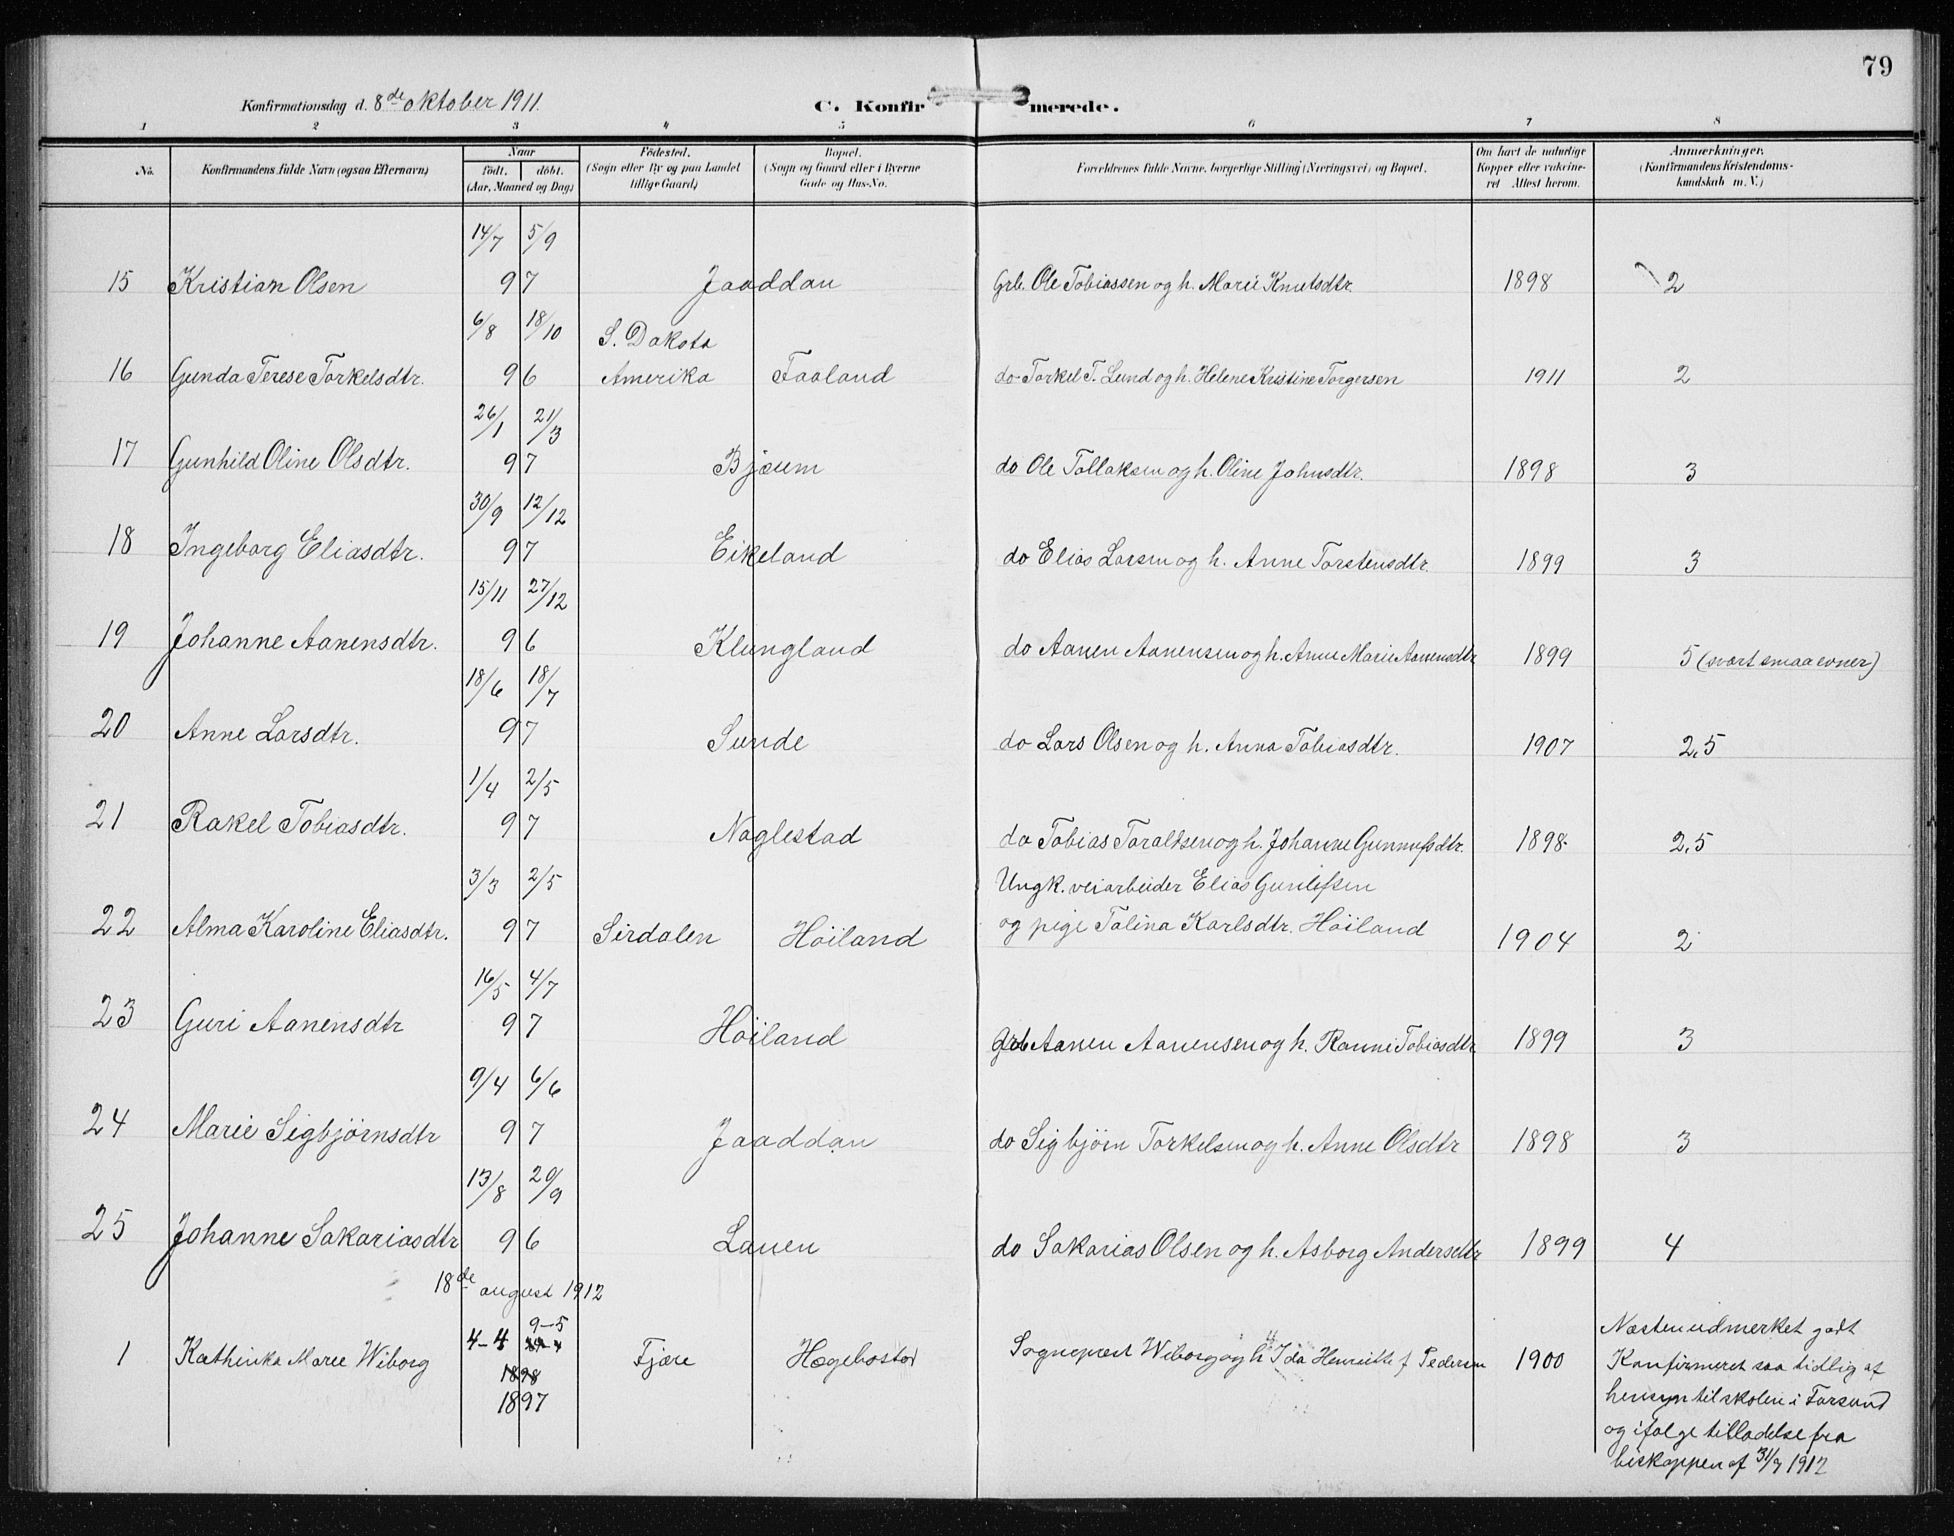 79
Konfirmationsdag d. 8de oktober 1911. C. Konfirmerede.
1 2 3 4 5 6 7 8
No. Konfirmandens fulde Navn (ogsaa Efternavn) Naar født. døbt. (Aar, Maaned og Dag) Fødested. (Sogn eller By og paa Landet tillige Gaard) Bopæl. (Sogn og Gaard eller i Byerne Gade og Hus-No. Forældrenes fulde Navne, borgerlige Stilling (Næringsvei) og Bopæl. Om havt de naturlige Kopper eller vakcineret Attest herom. Anmærkninger. (Konfirmandens Kristendomskundskab m. V.)
14/7 5/9
15 Kristian Olsen 97 Jaaddan Grb. Ole Tobiassen og h. Marie Knutsdtr. 1898 2
6/8 18/10 S. Dakota
16 Gunda Terese Torkelsdtr. 96 Amerika Faaland do Torkel T. Lund og h. Helene Kristine Torgersen 1911 2
26/1 21/3
17 Gunhild Oline Olsdtr. 97 Bjærum do Ole Tollaksen og h. Oline Johnsdtr. 1898 3
30/9 12/12
18 Ingeborg Eliasdtr. 97 Eikeland do Elias Larsen og h. Anne Torstensdtr. 1899 3
15/11 27/12
19 Johanne Aanensdtr. 96 Klungland do Aanen Aanensen og h. Anne Marie Aanensdtr 1899 5 (svært smaa evner)
18/6 18/7
20 Anne Larsdtr. 97 Sunde do Lars Olsen og h. Anna Tobiasdtr. 1907 2,5
1/4 2/5
21 Rakel Tobiasdtr. 97 Naglestad do Tobias Taraldsen og h. Johanne Gunnufsdtr. 1898 2,5
3/3 2/5 Ungk. veiarbeider Elias Gunlefsen
22 Alma Karoline Eliasdtr. 97 Sirdalen Höiland og pige Talina Karlsdtr. Höiland 1904 2
16/5 4/7
23 Guri Aanensdtr 97 Höiland Grb Aanen Aanensen og h. Ranni Tobiasdtr 1899 3
9/4 6/6
24 Marie Sigbjørnsdtr 97 Jaaddan do Sigbjörn Torkelsen og h. Anne Olsdtr 1898 3
13/8 20/9
25 Johanne Sakariasdtr 96 Lauen do Sakarias Olsen og h. Asborg Andersdtr 1899 4
18de august 1912
9-5
1 Kathinka Marie Wiborg 4-4 Fjære Hægebostad Sogneprest Wiborg og h Ida Henriette f Pedersen 1900 Næsten udmerket godt
1898 Konfirmeret saa tidlig af
1897 hensyn til skolen i Farsund
og ifølge tilladelse fra
biskoppen af 31/7 1912